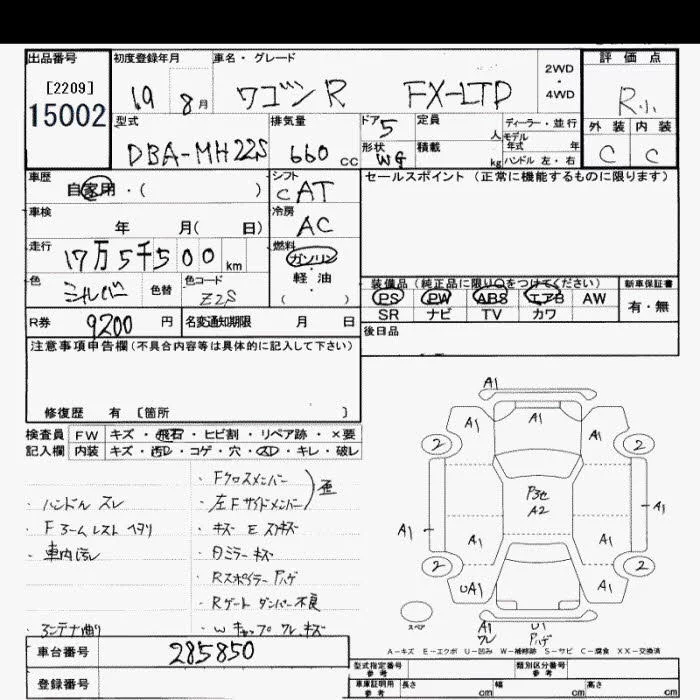 出品番号 初度登録年月 車名・グレード 評価点
[2209] 19 8月 ワゴン R FX-LTD 2WD・4WD R小
15002
型式 排気量 ドア 定員 人 ディーラー・並行 外装 内装
DBA-MH22S 660cc 5 モデル年式 年 C C
形状 WG 積載 kg ハンドル 左・右
車歴 自家用・( ) シフト CAT セールスポイント(正常に機能するものに限ります)
車検 年 月( 日) 冷房 AC
走行 17万5千500km 燃料 ガソリン・軽油( )
色 シルバー 色替 色コード Z2S
装備品(純正品に限り○をつけてください) 新車保証書
PS PW ABS エアB AW 有・無
SR ナビ TV カワ
R券 9200円 名変通知期限 月 日 後日品
注意事項申告欄(不具合内容等は具体的に記入して下さい)
修復歴 有 [箇所 ]
検査員 FW キズ・飛石・ヒビ割・リペア跡・×要
記入欄 内装 キズ・汚レ・コゲ・穴・スレ・キレ・破レ
・Fクロスメンバー
・ハンドル スレ ・左Fサイドメンバー 歪
・Fアームレスト ヘタリ ・キズ E スリキズ
・車内汚レ ・Dミラー キズ
・Rスポイラー ハゲ
・Rゲート ダンパー不良
・アンテナ曲り ・Wキャップ ワレ、キズ
A1
A1 A1 A1
2 2
P3セ
A2
A1 A1
A1 A1
2 2
UA1 A1
スペア A1 ワレ U1 ハゲ
A-キズ E-エクボ U-凹み W-補修跡 S-サビ C-腐食 XX-交換済
車台番号 285850
登録番号
型式指定番号 参考 類別区分番号 参考
車庫証明用 参考 長さ cm 幅 cm 高さ cm